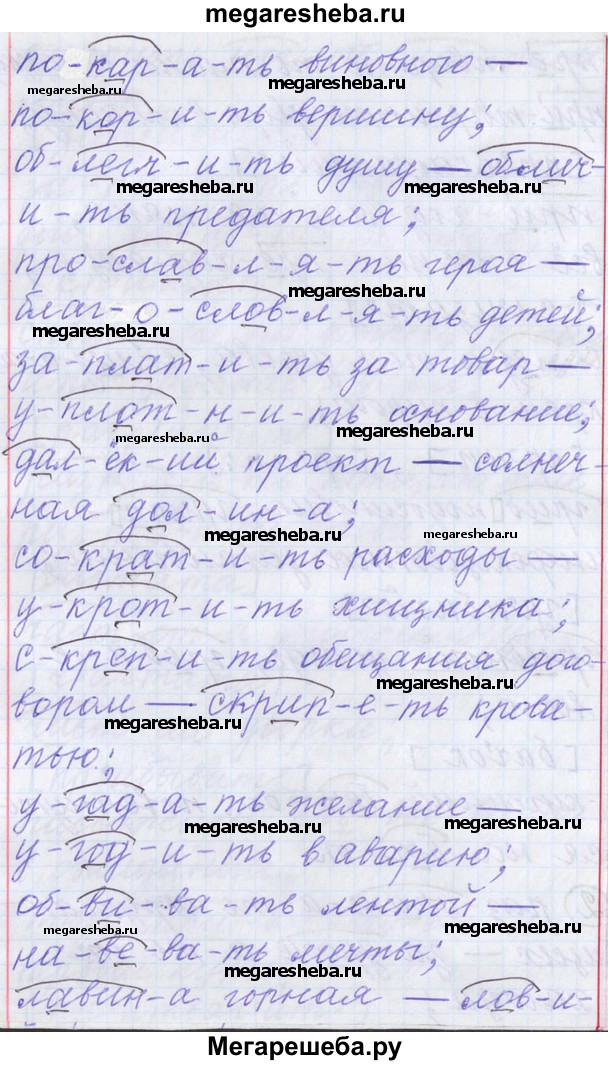 megaresheba.ru
по-кар-а-ть виновного —
megaresheba.ru
megaresheba.ru
по-кор-и-ть вершину;
об-легч-и-ть душу — облич-
megaresheba.ru
megaresheba.ru
и-ть предателя;
про-слав-л-я-ть героя —
megaresheba.ru
благ-о-слов-л-я-ть детей;
megaresheba.ru
за-плат-и-ть за товар —
у-плот-н-и-ть основание;
megaresheba.ru
megaresheba.ru
дал-ёк-ий проект — солнеч-
ная дол-ин-а;
megaresheba.ru
megaresheba.ru
со-крат-и-ть расходы —
у-крот-и-ть хищника;
с-креп-и-ть обещания дого-
megaresheba.ru
вором — скрип-е-ть крова-
megaresheba.ru
тью;
у-гад-а-ть желание —
megaresheba.ru
megaresheba.ru
у-год-и-ть в аварию;
об-ви-ва-ть лентой —
megaresheba.ru
megaresheba.ru
на-ве-ва-ть мечты;
megaresheba.ru
лавин-а горная — лов-и-
megaresheba.ru
megaresheba.ru
Мегарешеба.ру